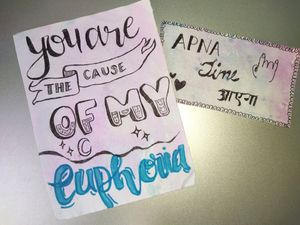 you are
THE CAUSE
OF MY
euphoria
APNA
Time
आएगा